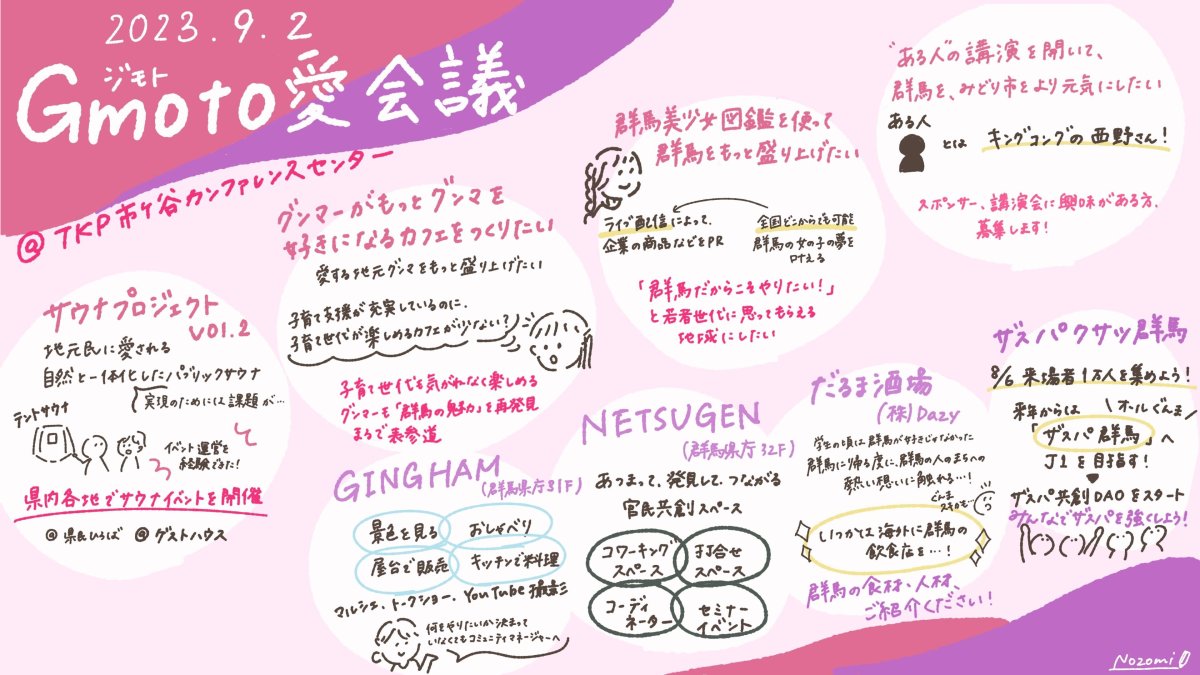 2023.9.2
ジモト
Gmoto愛会議
@TKP市ヶ谷カンファレンスセンター
サウナプロジェクト
vol.2
地元民に愛される
自然と一体化したパブリックサウナ
実現のためには課題が…
テントサウナ
イベント運営を
経験できた!
県内各地でサウナイベントを開催
@県民ひろば @ゲストハウス
グンマーがもっとグンマを
好きになるカフェをつくりたい
愛する地元グンマをもっと盛り上げたい
子育て支援が充実しているのに、
子育て世代が楽しめるカフェが少ない?
子育て世代も気がねなく楽しめる
グンマーも「群馬の魅力」を再発見
まるで表参道
群馬美少女図鑑を使って
群馬をもっと盛り上げたい
ライブ配信によって、
企業の商品などをPR
全国どこからでも可能
群馬の女の子の夢を
叶える
「群馬だからこそやりたい!」
と若者世代に思ってもらえる
地域にしたい
"ある人"の講演を開いて、
群馬を、みどり市をより元気にしたい
ある人
とは キングコングの西野さん!
スポンサー、講演会に興味がある方、
募集します!
GINGHAM
(群馬県庁31F)
景色を見る
おしゃべり
屋台で販売
キッチンで料理
マルシェ、トークショー、YouTube撮影
何をやりたいか決まって
いなくともコミュニティマネージャーへ
NETSUGEN
(群馬県庁32F)
あつまって、発見して、つながる
官民共創スペース
コワーキング
スペース
打合せ
スペース
コーディ
ネーター
セミナー
イベント
だるま酒場
(株)Dazy
学生の頃は群馬が好きじゃなかった
群馬に帰る度に、群馬の人のまちへの
熱い想いに触れる…!
ぐんま
スキかも…
いつかは海外に群馬の
飲食店を…!
群馬の食材、人材、
ご紹介ください!
ザスパクサツ群馬
8/6 来場者1万人を集めよう!
来年からは
オールぐんま
「ザスパ群馬」へ
J1を目指す!
ザスパ共創DAOをスタート
みんなでザスパを強くしよう!
Nozomi